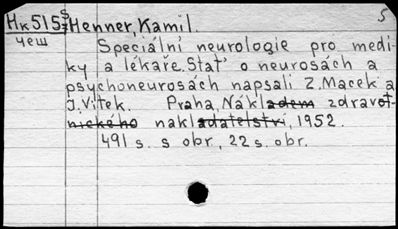 Нк515 S/z Henner, Kamil. 5
чеш
Speciální neurologie pro medi-
ky a lékaře. Stať o neurosách a
psychoneurosách napsali Z. Macek a
J. Vítek. Praha, Nákladem zdravot-
nického nakladatelství, 1952.
491 s. s obr., 22 s. obr.